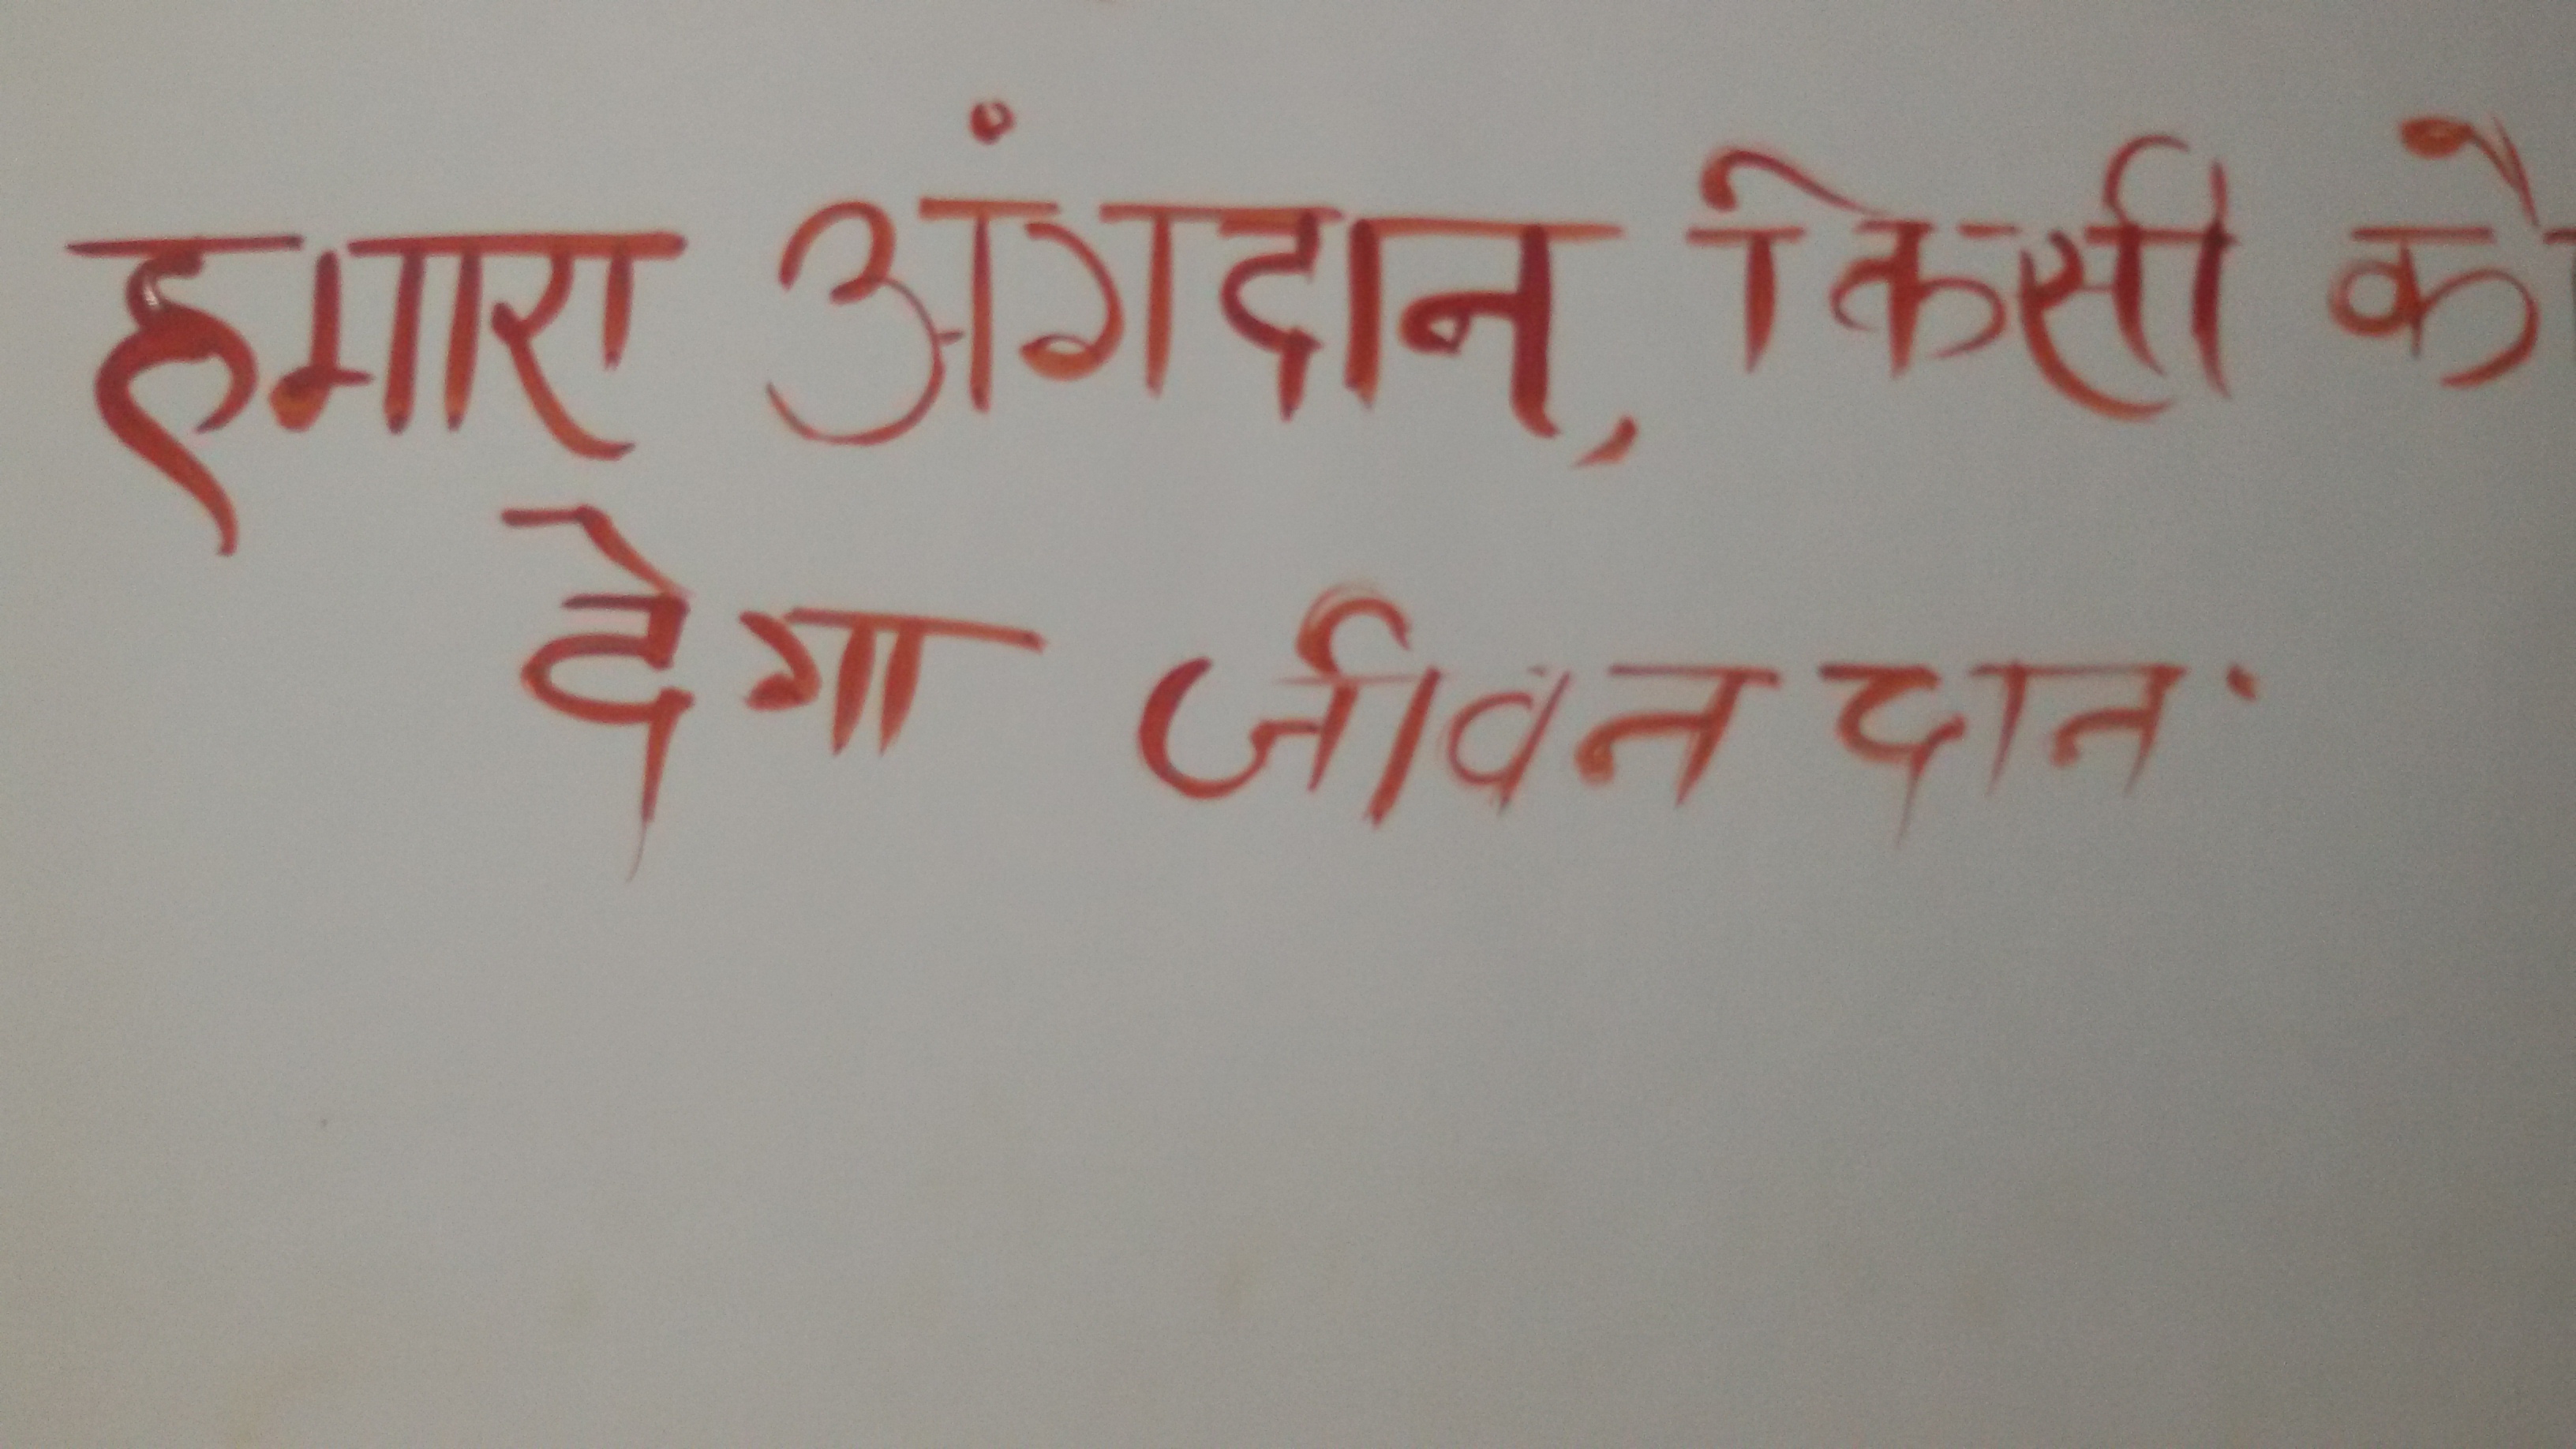 हमारा अंगदान, किसी को
देगा जीवन दान.